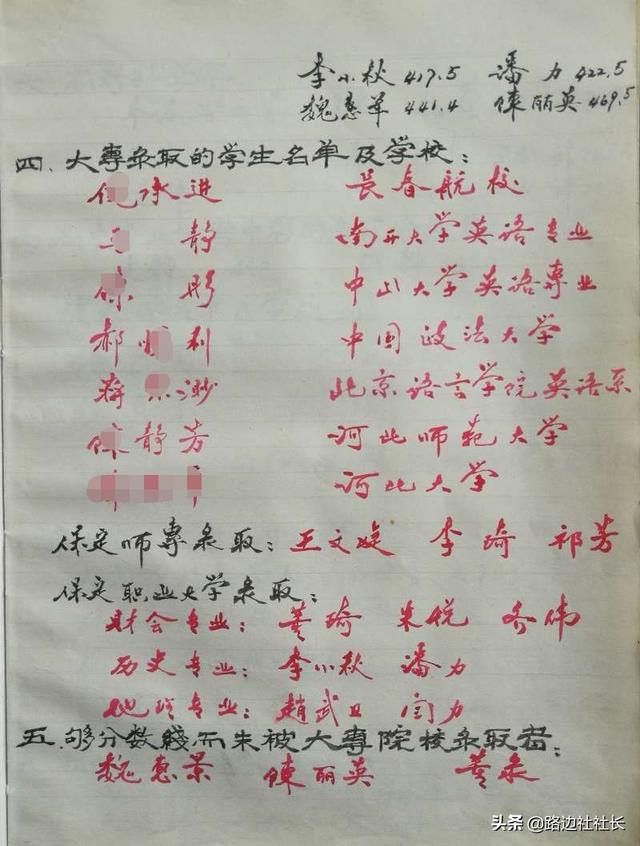 李小秋 417.5 潘力 422.5
魏惠 441.4 陳丽英 469.5
四、大專录取的学生名单及学校：
承进 長春航校
静 南开大学英语专业
彤 中山大学英语專业
郝 利 中国政法大学
蒋 渺 北京语言学院英语系
静芳 河北师范大学
河北大学
保定师專录取：王文娖 李琦 祁芳
保定职业大学录取：
财会专业：姜琦 朱悦 乔伟
历史专业：李小秋 潘力
地理专业：趙武卫 闫力
五、够分数綫而未被大專院校录取者：
魏惠景 陳丽英
头条 @路边社社长